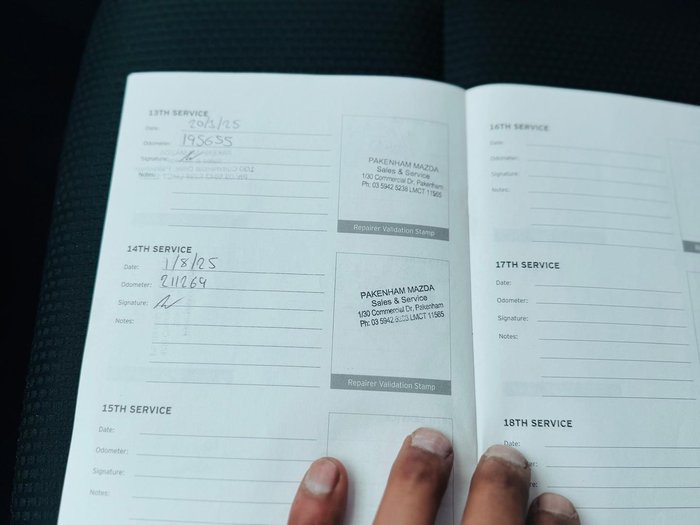 13TH SERVICE
Date: 20/3/25
Odometer: 195655
Signature:
Notes:
PAKENHAM MAZDA
Sales & Service
1/30 Commercial Dr, Pakenham
Ph: 03 5942 8238 LMCT 11565
Repairer Validation Stamp
14TH SERVICE
Date: 1/8/25
Odometer: 211269
Signature:
Notes:
PAKENHAM MAZDA
Sales & Service
1/30 Commercial Dr, Pakenham
Ph: 03 5942 LMCT 11565
Repairer Validation Stamp
15TH SERVICE
Date:
Odometer:
Signature:
Notes:
16TH SERVICE
Date:
Odometer:
Signature:
Notes:
17TH SERVICE
Date:
Odometer:
Signature:
Notes:
18TH SERVICE
Date: